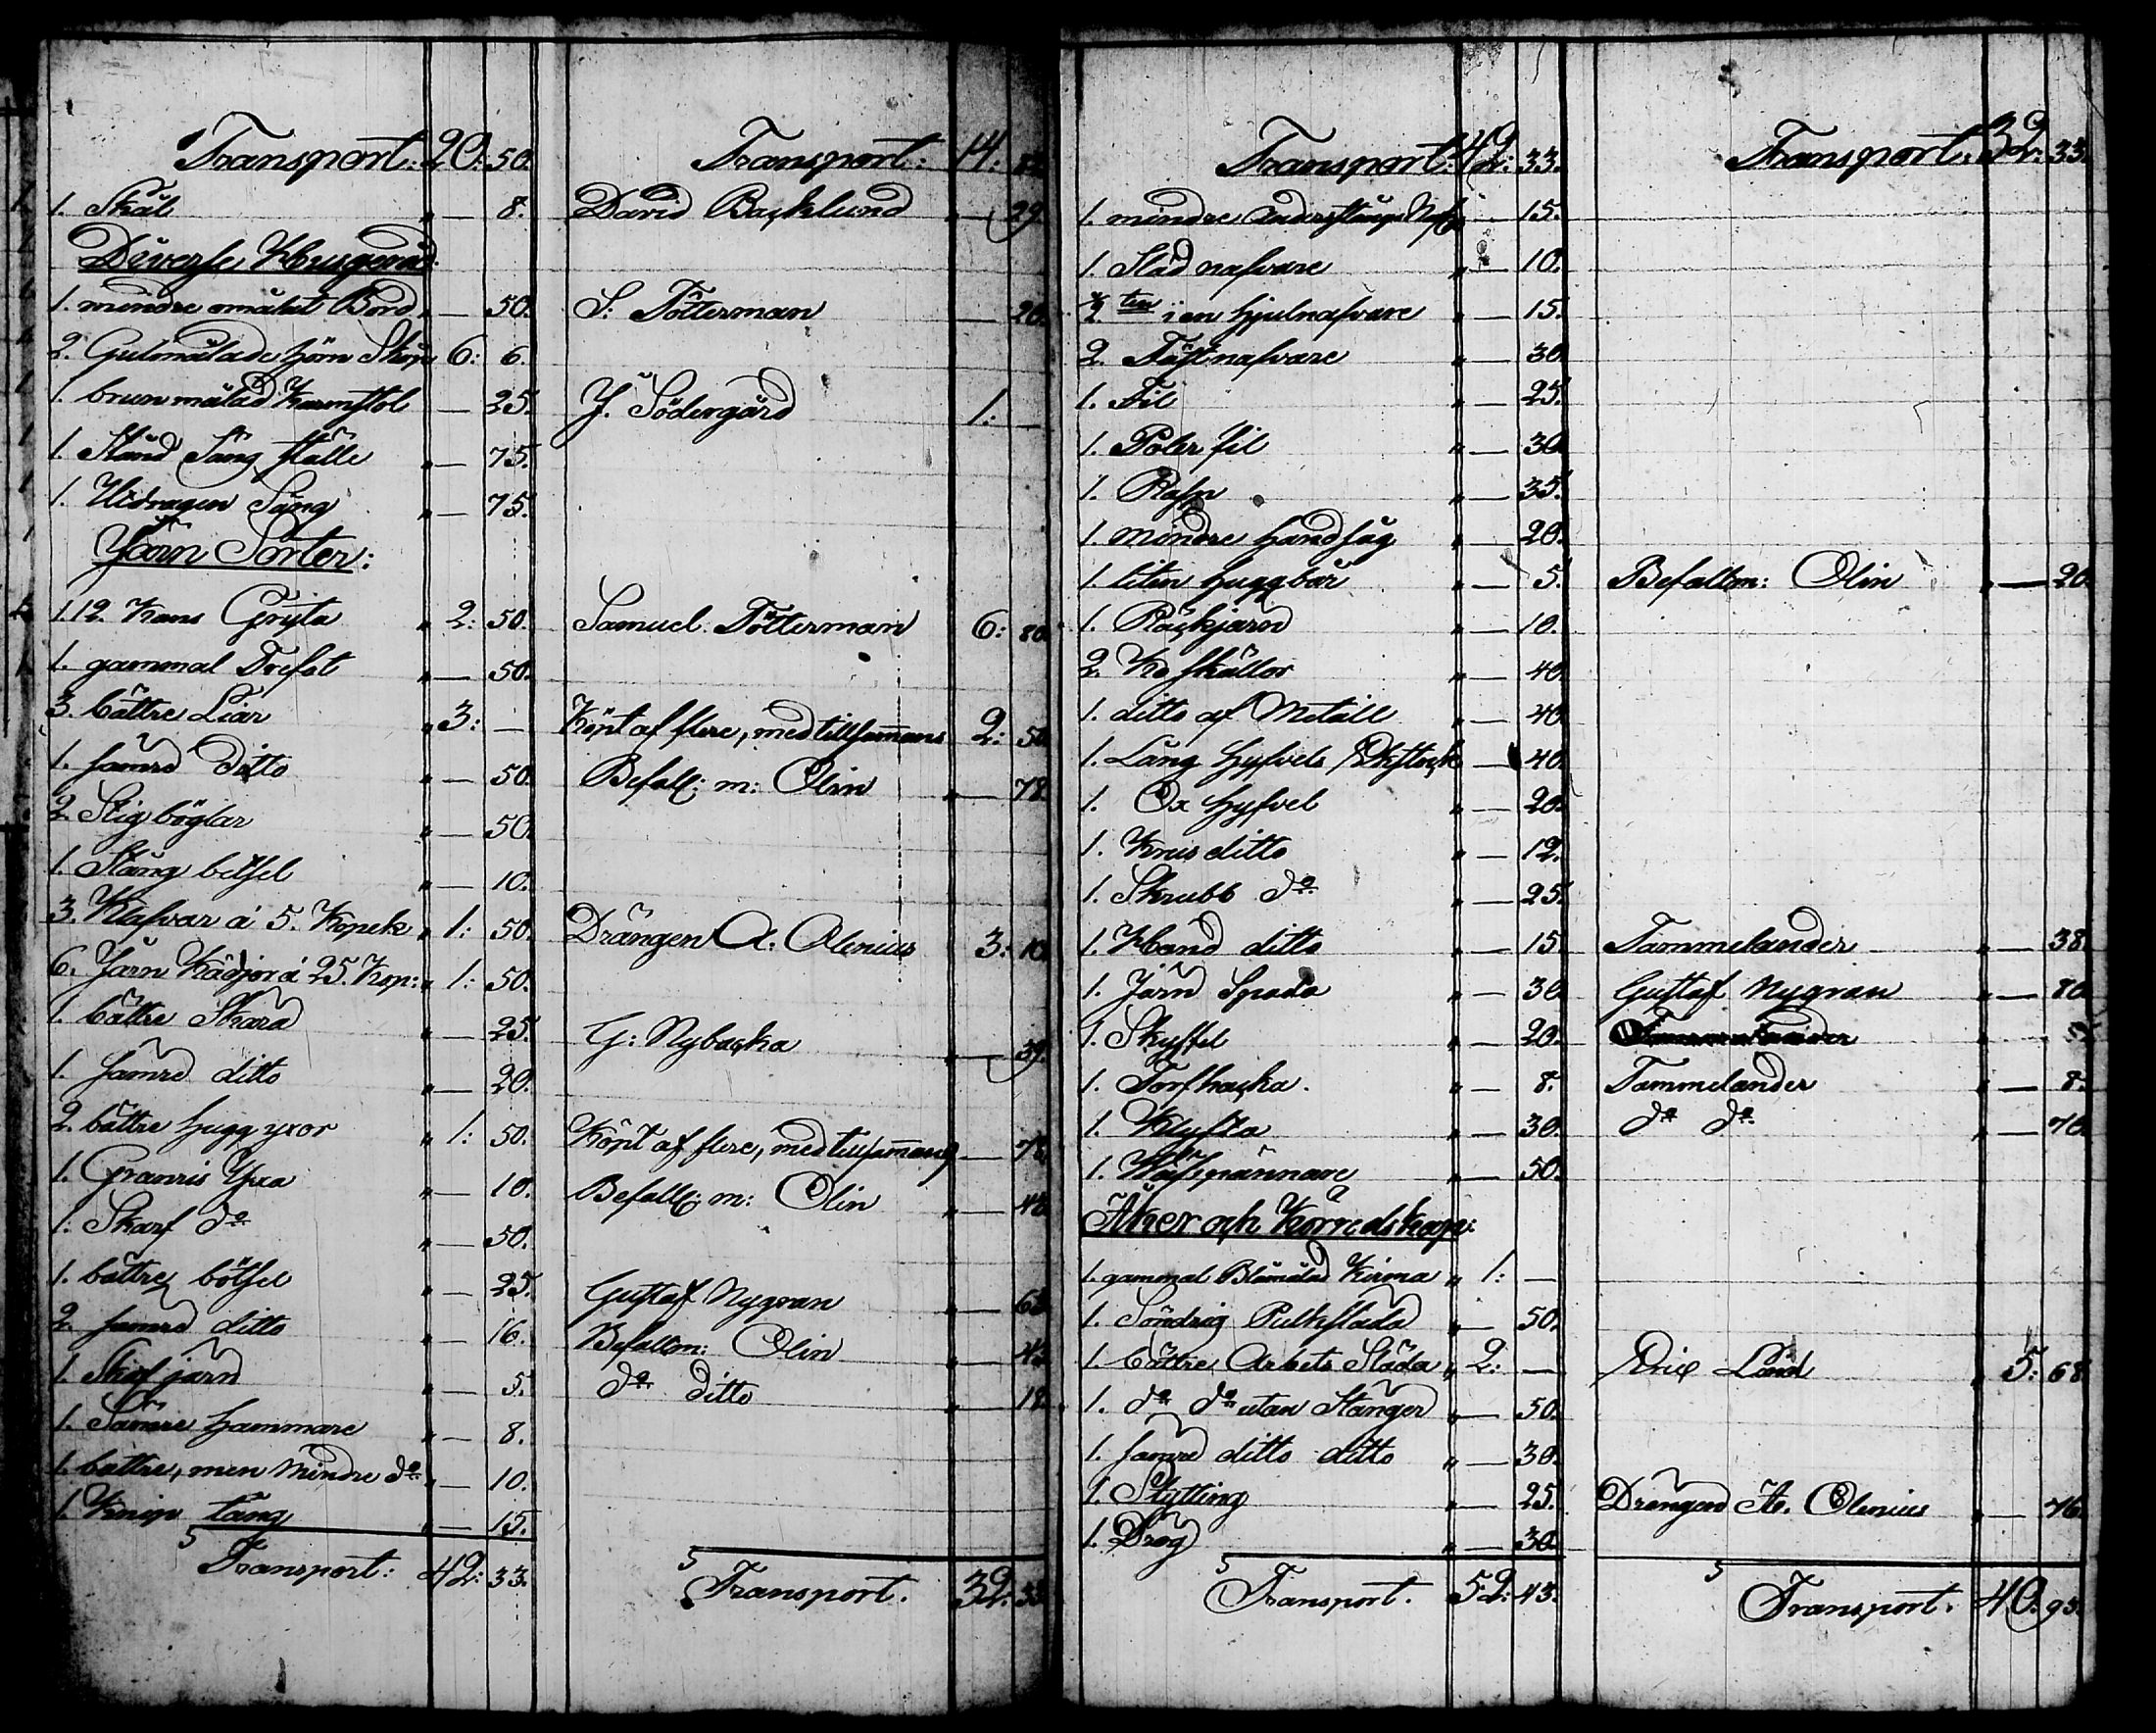 Transport: 20: 50. Transport: 14:
1. Skål " — 8. David Backlund " — 29.
Diverse Husgeråd
1. mindre omålat Bord " — 50. S: Tötterman — 20.
2. Gulmålade hörn Skåp 6: 6.
1. brun målad Karmstol — 25. J. Södergård 1: —
1. Ständ Säng ställe " — 75.
1. Utdragen Säng " — 75.
Järn Sorter:
1. 12. Kans Gryta " 2: 50. Samuel Tötterman 6: 80.
1. gammal Trefot " — 50.
3. bättre Liar " 3: — Köpt af flere, med tillsam̅ans 2: 50
1. sämre ditto " — 50. Befall: m: Olin " — 78.
2. Stig böglar " — 50.
1. Stång betsel " — 10.
3. Klafvar á 5. Kopek " 1: 50. Drängen A: Olenius 3: 10.
6. Järn Kädjor á 25. Kop: " 1: 50.
1. bättre Skära " — 25. G: Nybacka " — 39.
1. sämre ditto " — 20.
2. bättre hugg yxor " 1: 50. Köpt af flere, med tillsam̅ans —
1. Granris Yxa " — 10. Befall: m: Olin " —
1. Skarf do " — 50.
1. bättre bötsel " — 25. Gustaf Nygran " —
2. sämre ditto " — 16. Befallm: Olin " —
1. Skaf järn " — 5. do ditto " — 18.
1. Sämre hammare " — 8.
1. bättre, men mindre do " — 10.
1. Knip tång " — 15.
Transport: 42: 33. Transport. 32: 33
Transport: 42: 33. Transport: 32: 33.
1. mindre — 15.
1. Släd nafvare " — 10.
1/2 ten i en hjulnafvare " — 15.
2. Tästnafvare " — 30
1. Fil " — 25.
1. Poler fil " — 30
1. Rasp " — 35.
1. mindre handsåg " — 20.
1. liten huggbår " — 5. Befallm: Olin " — 20.
1. Räckjärn " — 10.
2. Ko skällor " — 40
1. ditto af Metall " — 40
1. Lång hyfvels — 40.
1. Ox hyfvel " — 20.
1. Krus ditto " — 12.
1. Skrubb do " — 25.
1. Hand ditto " — 15. Tammelander " — 38.
1. Järn Spada " — 30 Gustaf Nygran " — 80.
1. Skyffel " — 20.
1. Torfhacka. " — 8. Tammelander " — 8.
1. Klyfta " — 30. do do " — 70.
1. Wäfspännare " — 50.
Åker och Körredskap:
1. gammal Blåmålad Kirma " 1: —
1. Söndrig Pulkslada " — 50.
1. bättre Arbets Släda " 2: — Eric Lård " 5: 68
1. do do utan Stänger " — 50.
1. sämre ditto ditto " — 30.
1. Stytting " — 25. Drängen A. Olenius " — 76.
1. Drög " — 30
Transport. 52: 43. Transport. 40. 93.